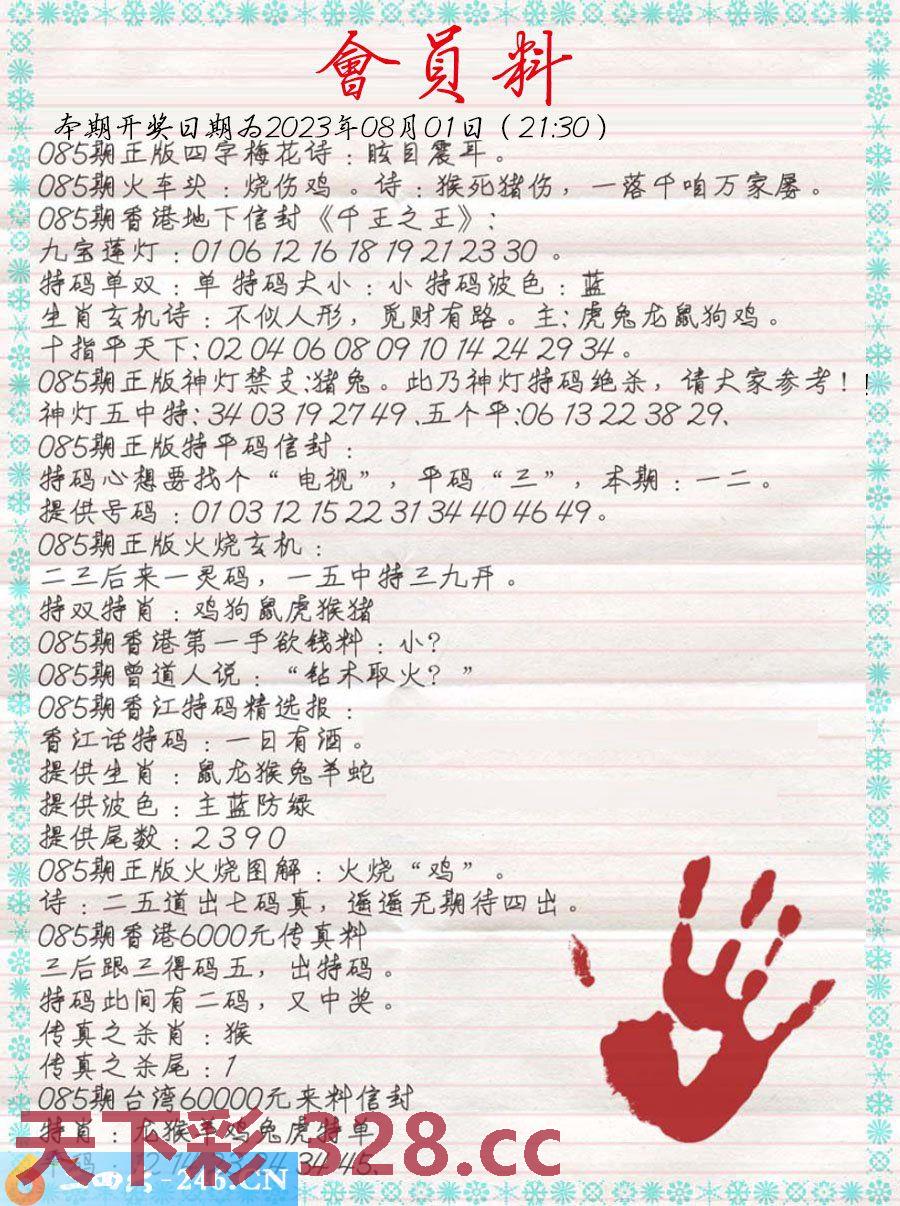 會員料
本期开奖日期为2023年08月01日（21:30）
085期正版四字梅花诗：眩目震耳。
085期火车头：烧伤鸡 。诗：猴死猪伤，一落千咱万家屡。
085期香港地下信封《千王之王》：
九宝莲灯：01 06 12 16 18 19 21 23 30 。
特码单双：单 特码大小：小 特码波色：蓝
生肖玄机诗：不似人形，觅财有路。主:虎兔龙鼠狗鸡。
十指平天下:02 04 06 08 09 10 14 24 29 34。
085期正版神灯禁支:猪兔。此乃神灯特码绝杀，请大家参考！！
神灯五中特:34 03 19 27 49 、五个平:06 13 22 38 29、
085期正版特平码信封：
特码心想要找个“ 电视”，平码“三”，本期：一二。
提供号码：01 03 12 15 22 31 34 40 46 49。
085期正版火烧玄机：
二三后来一灵码，一五中特三九开。
特双特肖：鸡狗鼠虎猴猪
085期香港第一手欲钱料：小？
085期曾道人说：“钻木取火？”
085期香江特码精选报：
香江话特码：一日有酒。
提供生肖：鼠龙猴兔羊蛇
提供波色：主蓝防绿
提供尾数：2 3 9 0
085期正版火烧图解：火烧“鸡”。
诗：二五道出七码真，遥遥无期待四出。
085期香港6000元传真料
三后跟三得码五，出特码。
特码此间有二码，又中奖。
传真之杀肖：猴
传真之杀尾：1
085期台湾60000元来料信封
特肖：龙猴羊鸡兔虎特单
34 45、
天下彩 328.cc
二四六-246.CN